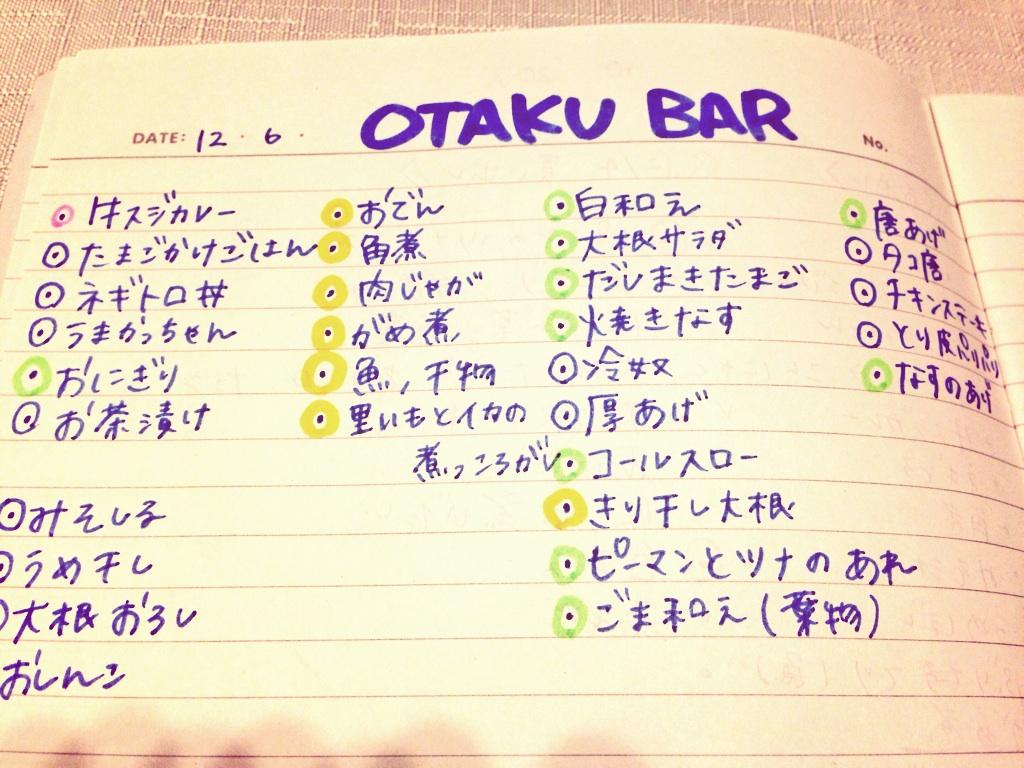 OTAKU BAR
DATE: 12・6・
No.
牛スジカレー
たまごかけごはん
ネギトロ丼
うまかっちゃん
おにぎり
お茶漬け
みそしる
うめ干し
大根おろし
おしんこ
おでん
角煮
肉じゃが
がめ煮
魚,干物
里いもとイカの
煮っころがし
白和え
大根サラダ
だしまきたまご
焼きなす
冷奴
厚あげ
コールスロー
きり干し大根
ピーマンとツナのあれ
ごま和え(葉物)
唐あげ
タコ唐
チキンステーキ
とり皮パリパリ
なすのあげ